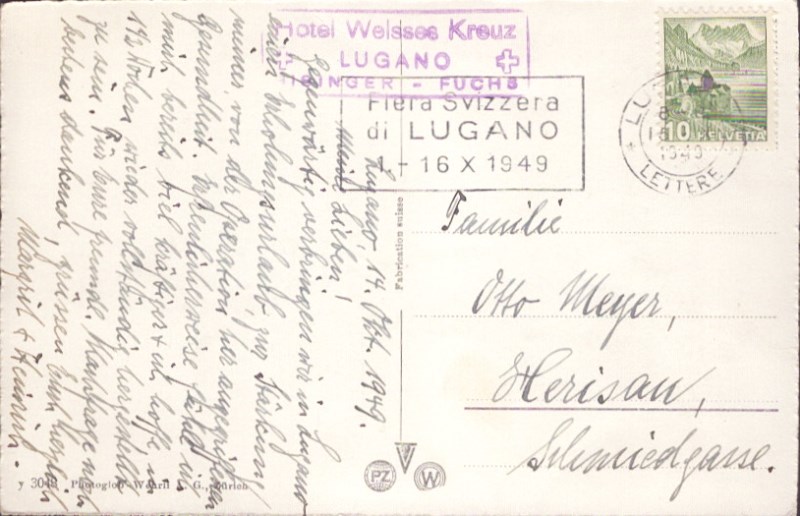 Hotel Weisses Kreuz
LUGANO
- FUCHS
Fiera Svizzera
di LUGANO
1 - 16 X 1949
LETTERE
10 HELVETIA
Lugano, 14. Okt. 1949.
Meine Lieben!
Gegenwärtig verbringen wir in Lugano
einen Erholungsurlaub zur Stärkung
meiner von der Operation her angegriffenen
Gesundheit. Erfreulicherweise fühle ich
mich bereits viel kräftiger & ich hoffe in
1½ Wochen wieder vollständig hergestellt
zu sein. Für Eure freundl. Nachfrage noch
bestens dankend, grüssen Euch herzlich
Margrit & Heinrich.
Fabrication suisse
Familie
Otto Meyer,
Herisau,
Schmiedgasse.
PZ W
y 3049 Photoglob-Wehrli A. G., Zürich